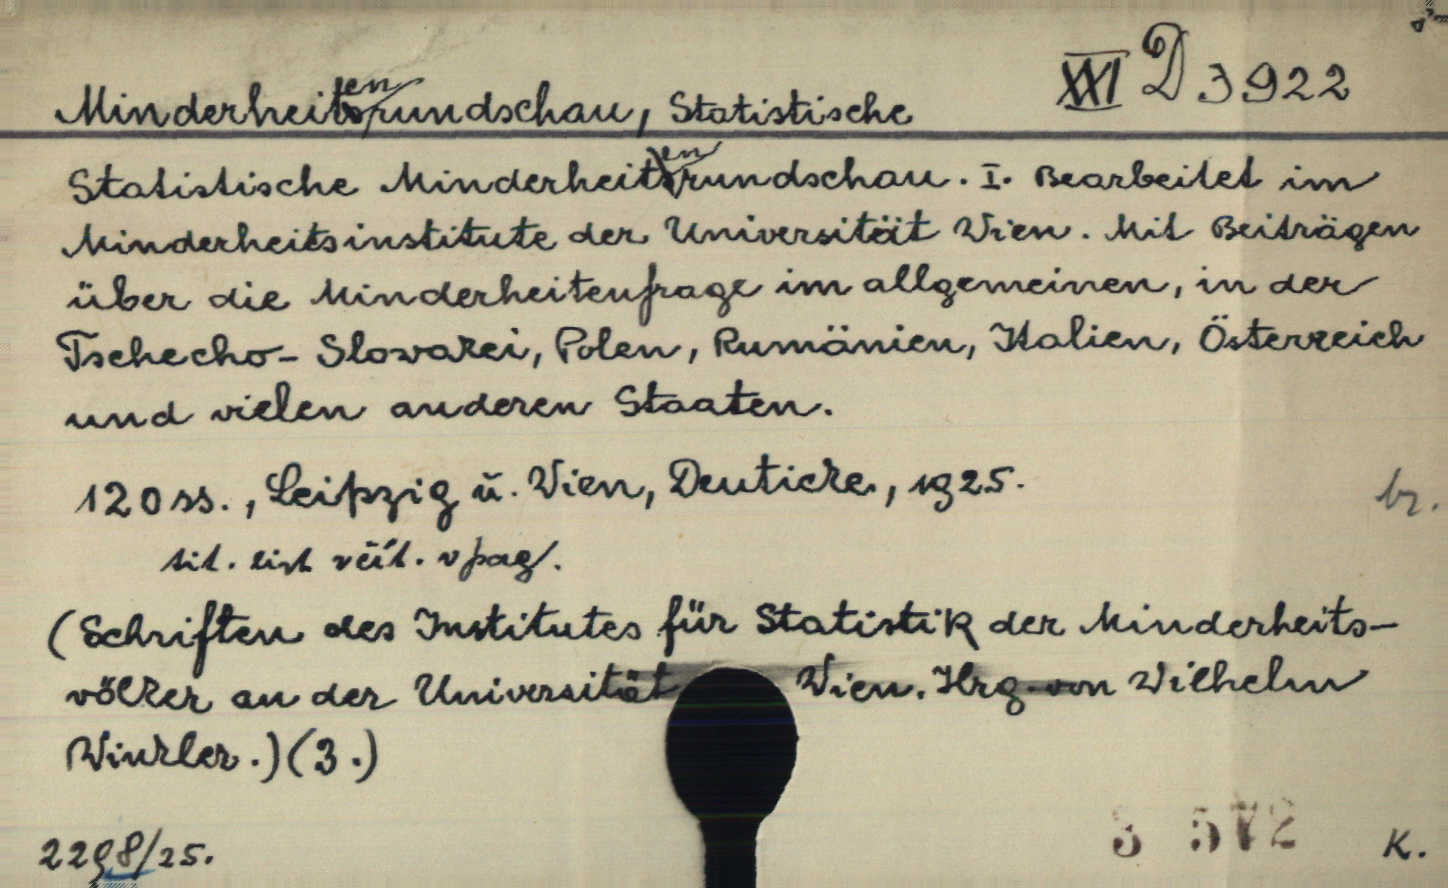 XXI D 3922
Minderheitenrundschau, Statistische
Statistische Minderheitenrundschau. I. Bearbeitet im
Minderheitsinstitute der Universität Wien. Mit Beiträgen
über die Minderheitenfrage im allgemeinen, in der
Tschecho-Slovakei, Polen, Rumänien, Italien, Österreich
und vielen anderen Staaten.
120 ss., Leipzig u. Wien, Deuticke, 1925.
br.
tit. list
(Schriften des Institutes für Statistik der Minderheits-
völker an der Universität Wien. Hrg. von Wilhelm
Winkler.) (3.)
2298/25.
3 572
K.